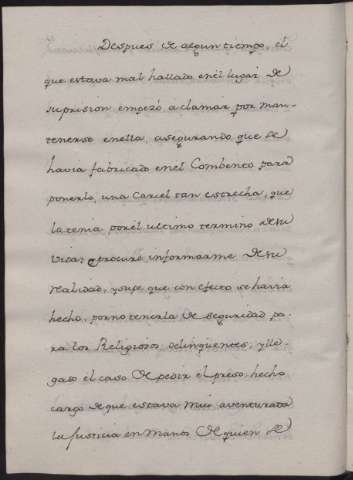 Despues de algun tiempo, el
que estava mal hallado en el lugar de
su prision empezó a clamar por man-
tenerse en ella, asegurando que se
havia fabricado en el Combento para
ponerlo, una Carcel tan estrecha, que
la tenia por el ultimo termino de su
vida; procuré informarme de su
realidad, y supe que con efecto se havia
hecho, por no tenerla de seguridad pa-
ra los Religiosos delinquentes, y lle-
gaso el caso de pedir el preso, hecho
cargo de que estava mui aventurada
la Justicia en manos de quien se